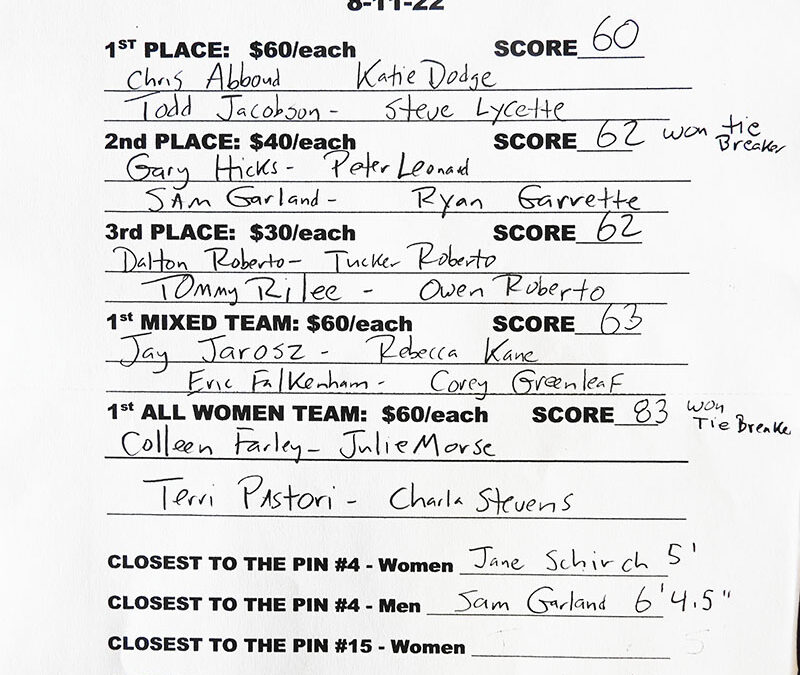 8-11-22
1ST PLACE: $60/each SCORE 60
Chris Abboud Katie Dodge
Todd Jacobson - Steve Lycette
2nd PLACE: $40/each SCORE 62 won tie Breaker
Gary Hicks - Peter Leonard
SAM Garland - Ryan Garrette
3rd PLACE: $30/each SCORE 62
Dalton Roberto - Tucker Roberto
TOmmy Rilee - Owen Roberto
1st MIXED TEAM: $60/each SCORE 63
Jay Jarosz - Rebecca Kane
Eric Falkenham - Corey Greenleaf
1st ALL WOMEN TEAM: $60/each SCORE 83 won Tie Breake
Colleen Farley - Julie Morse
Terri PAstori - Charla Stevens
CLOSEST TO THE PIN #4 - Women Jane Schirch 5'
CLOSEST TO THE PIN #4 - Men Sam Garland 6'4.5"
CLOSEST TO THE PIN #15 - Women